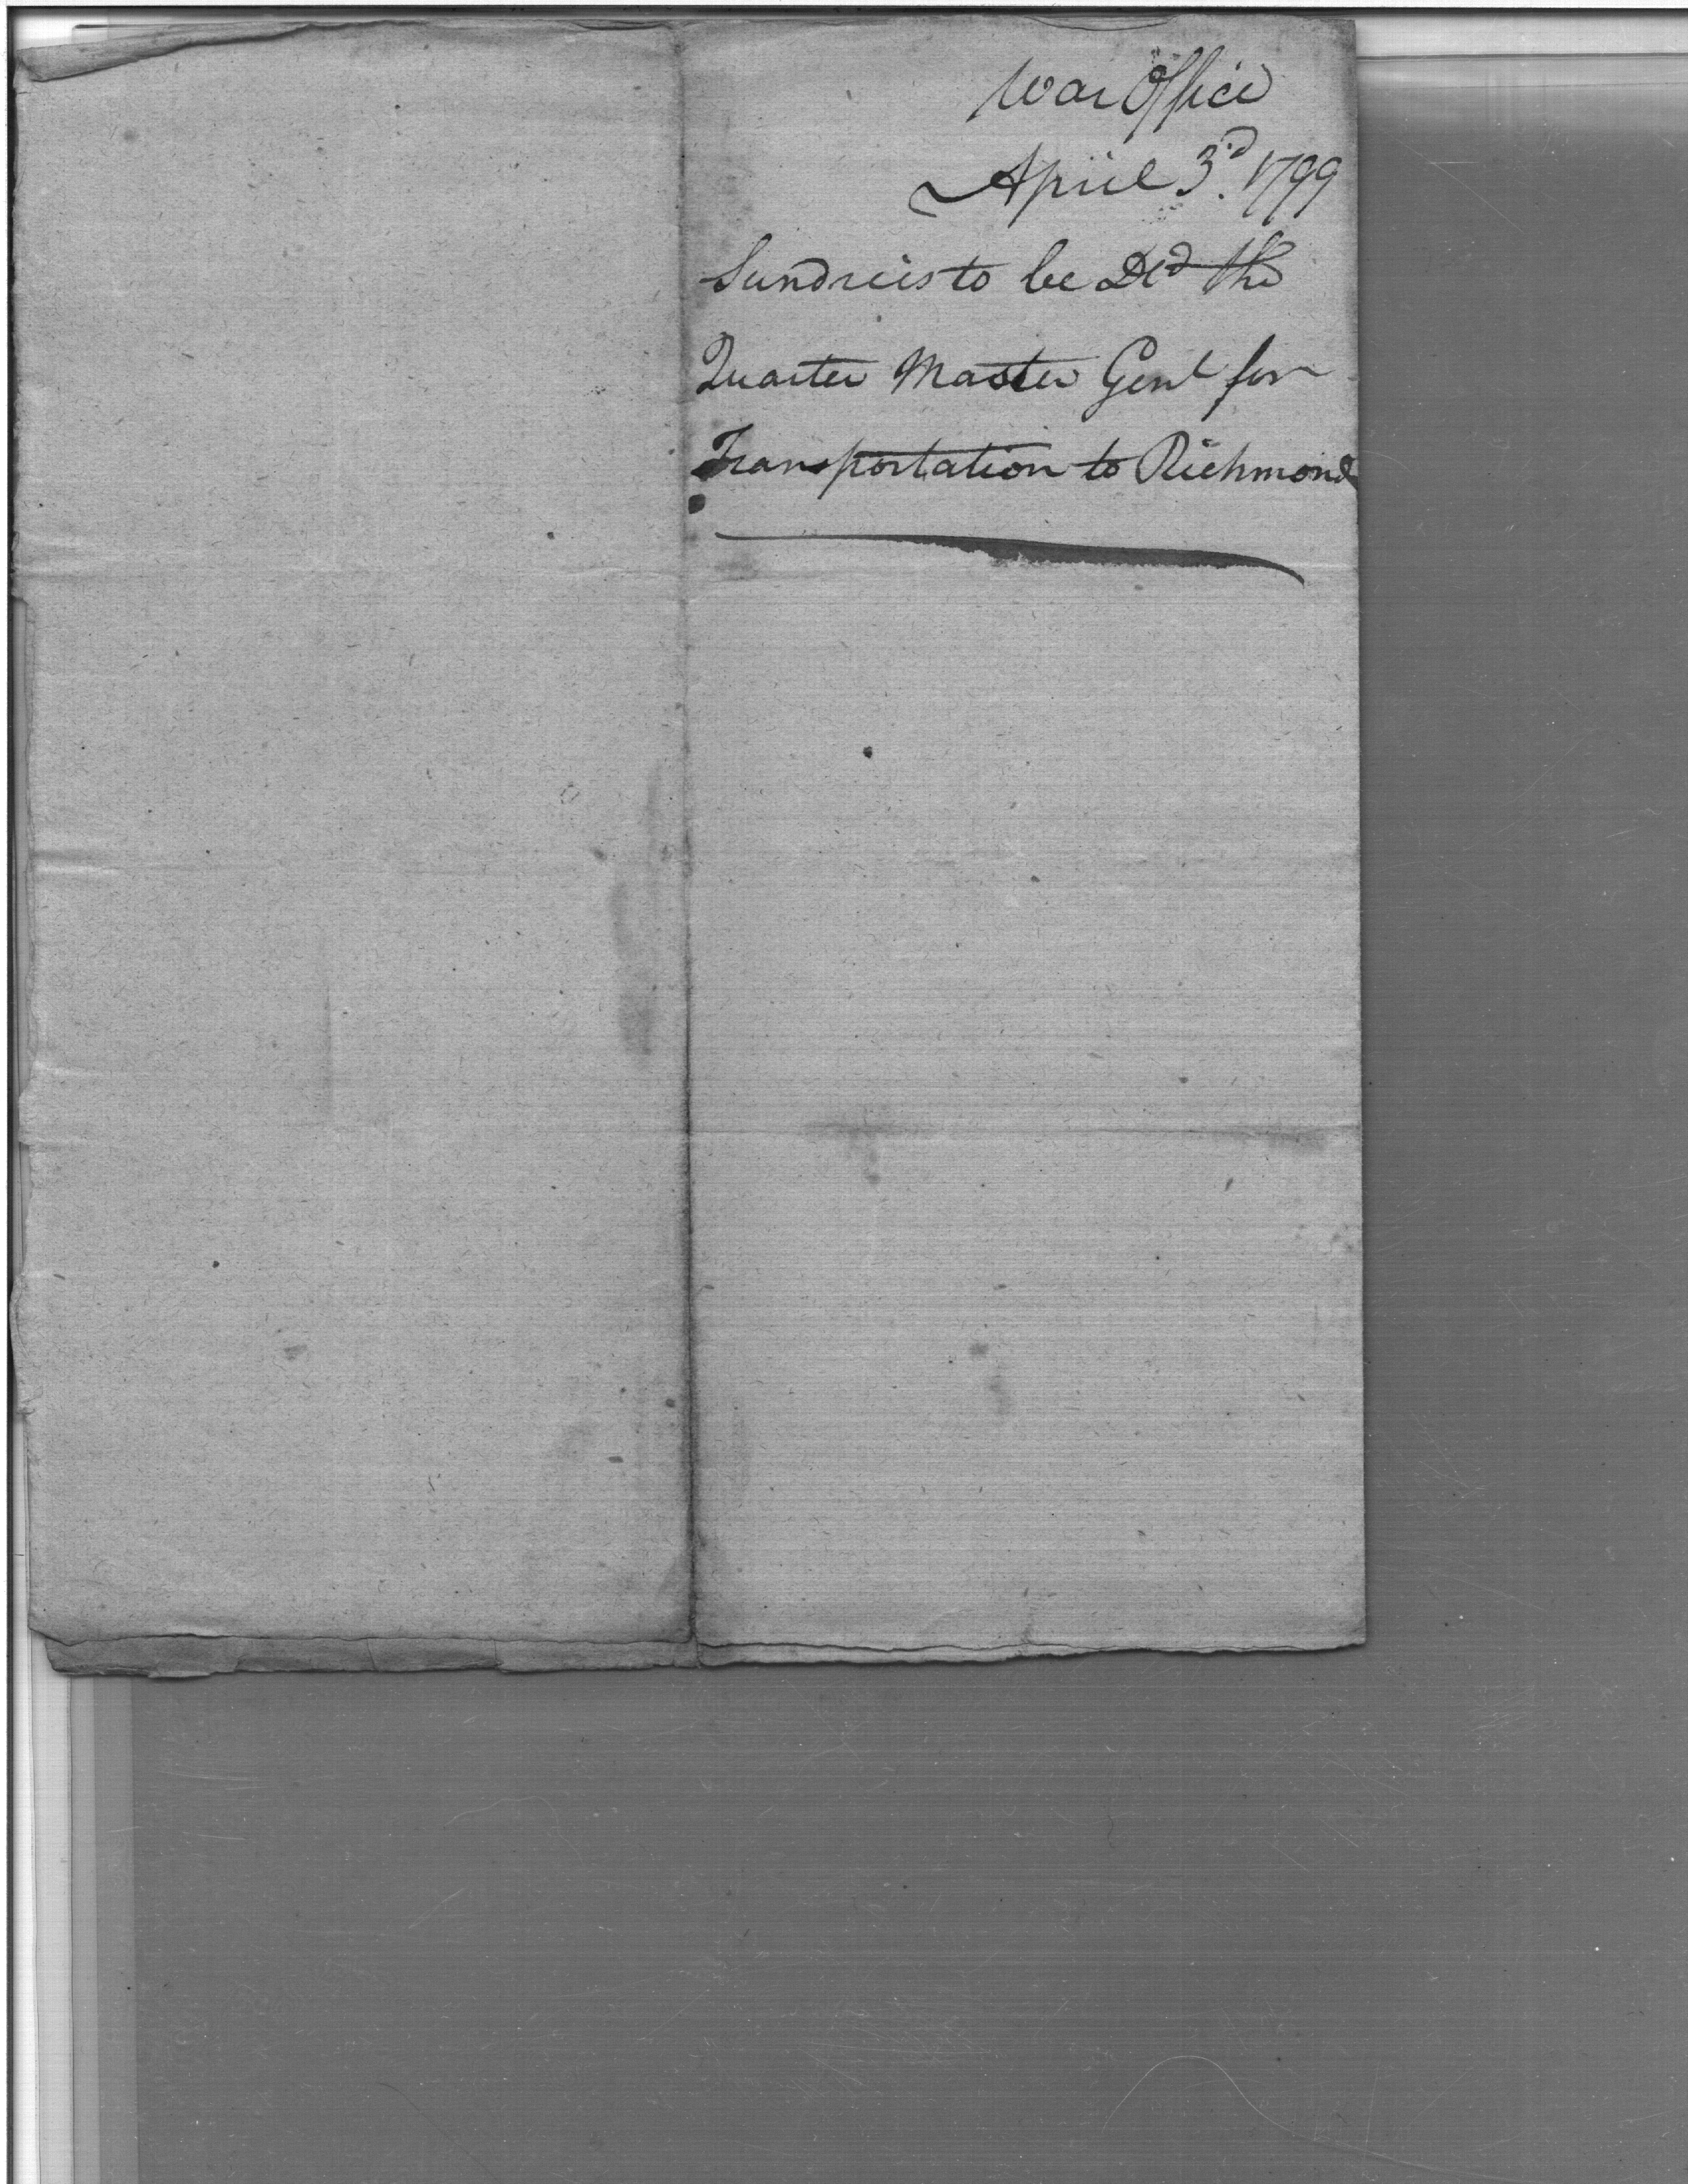 War Office
April 3d. 1799
Sundries to be Dld the
Quarter Master Genl for
Transportation to Richmond